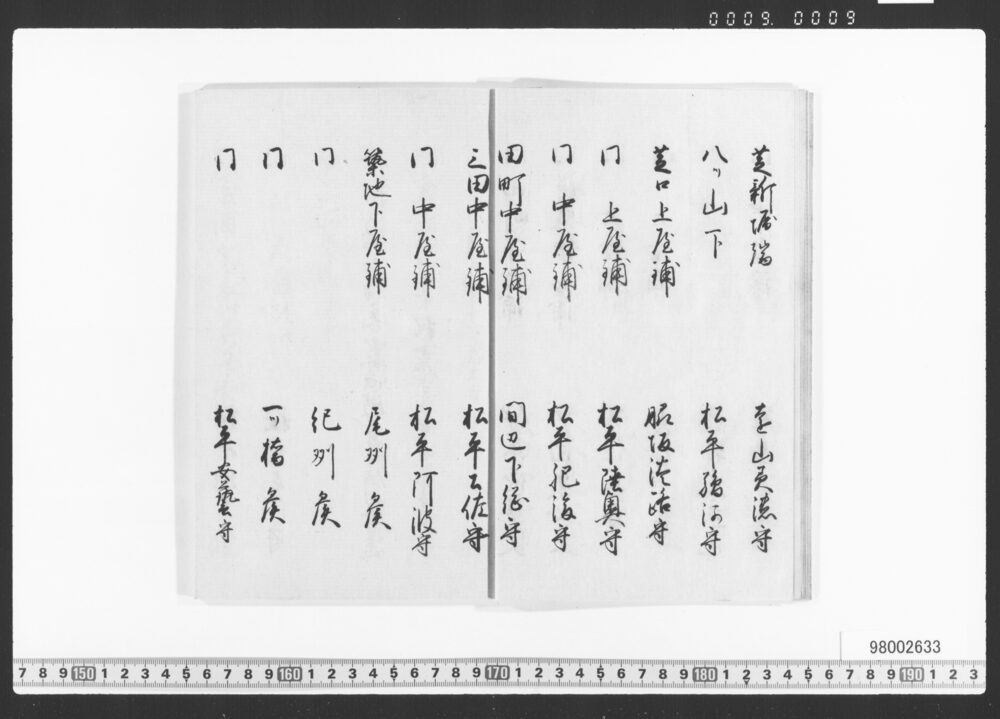 0009. 0009
芝新堀端 遠山美濃守
八ッ山下 松平駿河守
芝口上屋鋪 脇坂淡路守
同 上屋鋪 松平陸奥守
同 中屋鋪 松平肥後守
田町中屋鋪 間辺下総守
三田中屋鋪 松平土佐守
同 中屋鋪 松平阿波守
築地下屋鋪 尾州侯
同 紀州侯
同 一ツ橋侯
同 松平安藝守
98002633
7 8 9 150 1 2 3 4 5 6 7 8 9 160 1 2 3 4 5 6 7 8 9 170 1 2 3 4 5 6 7 8 9 180 1 2 3 4 5 6 7 8 9 190 1 2 3